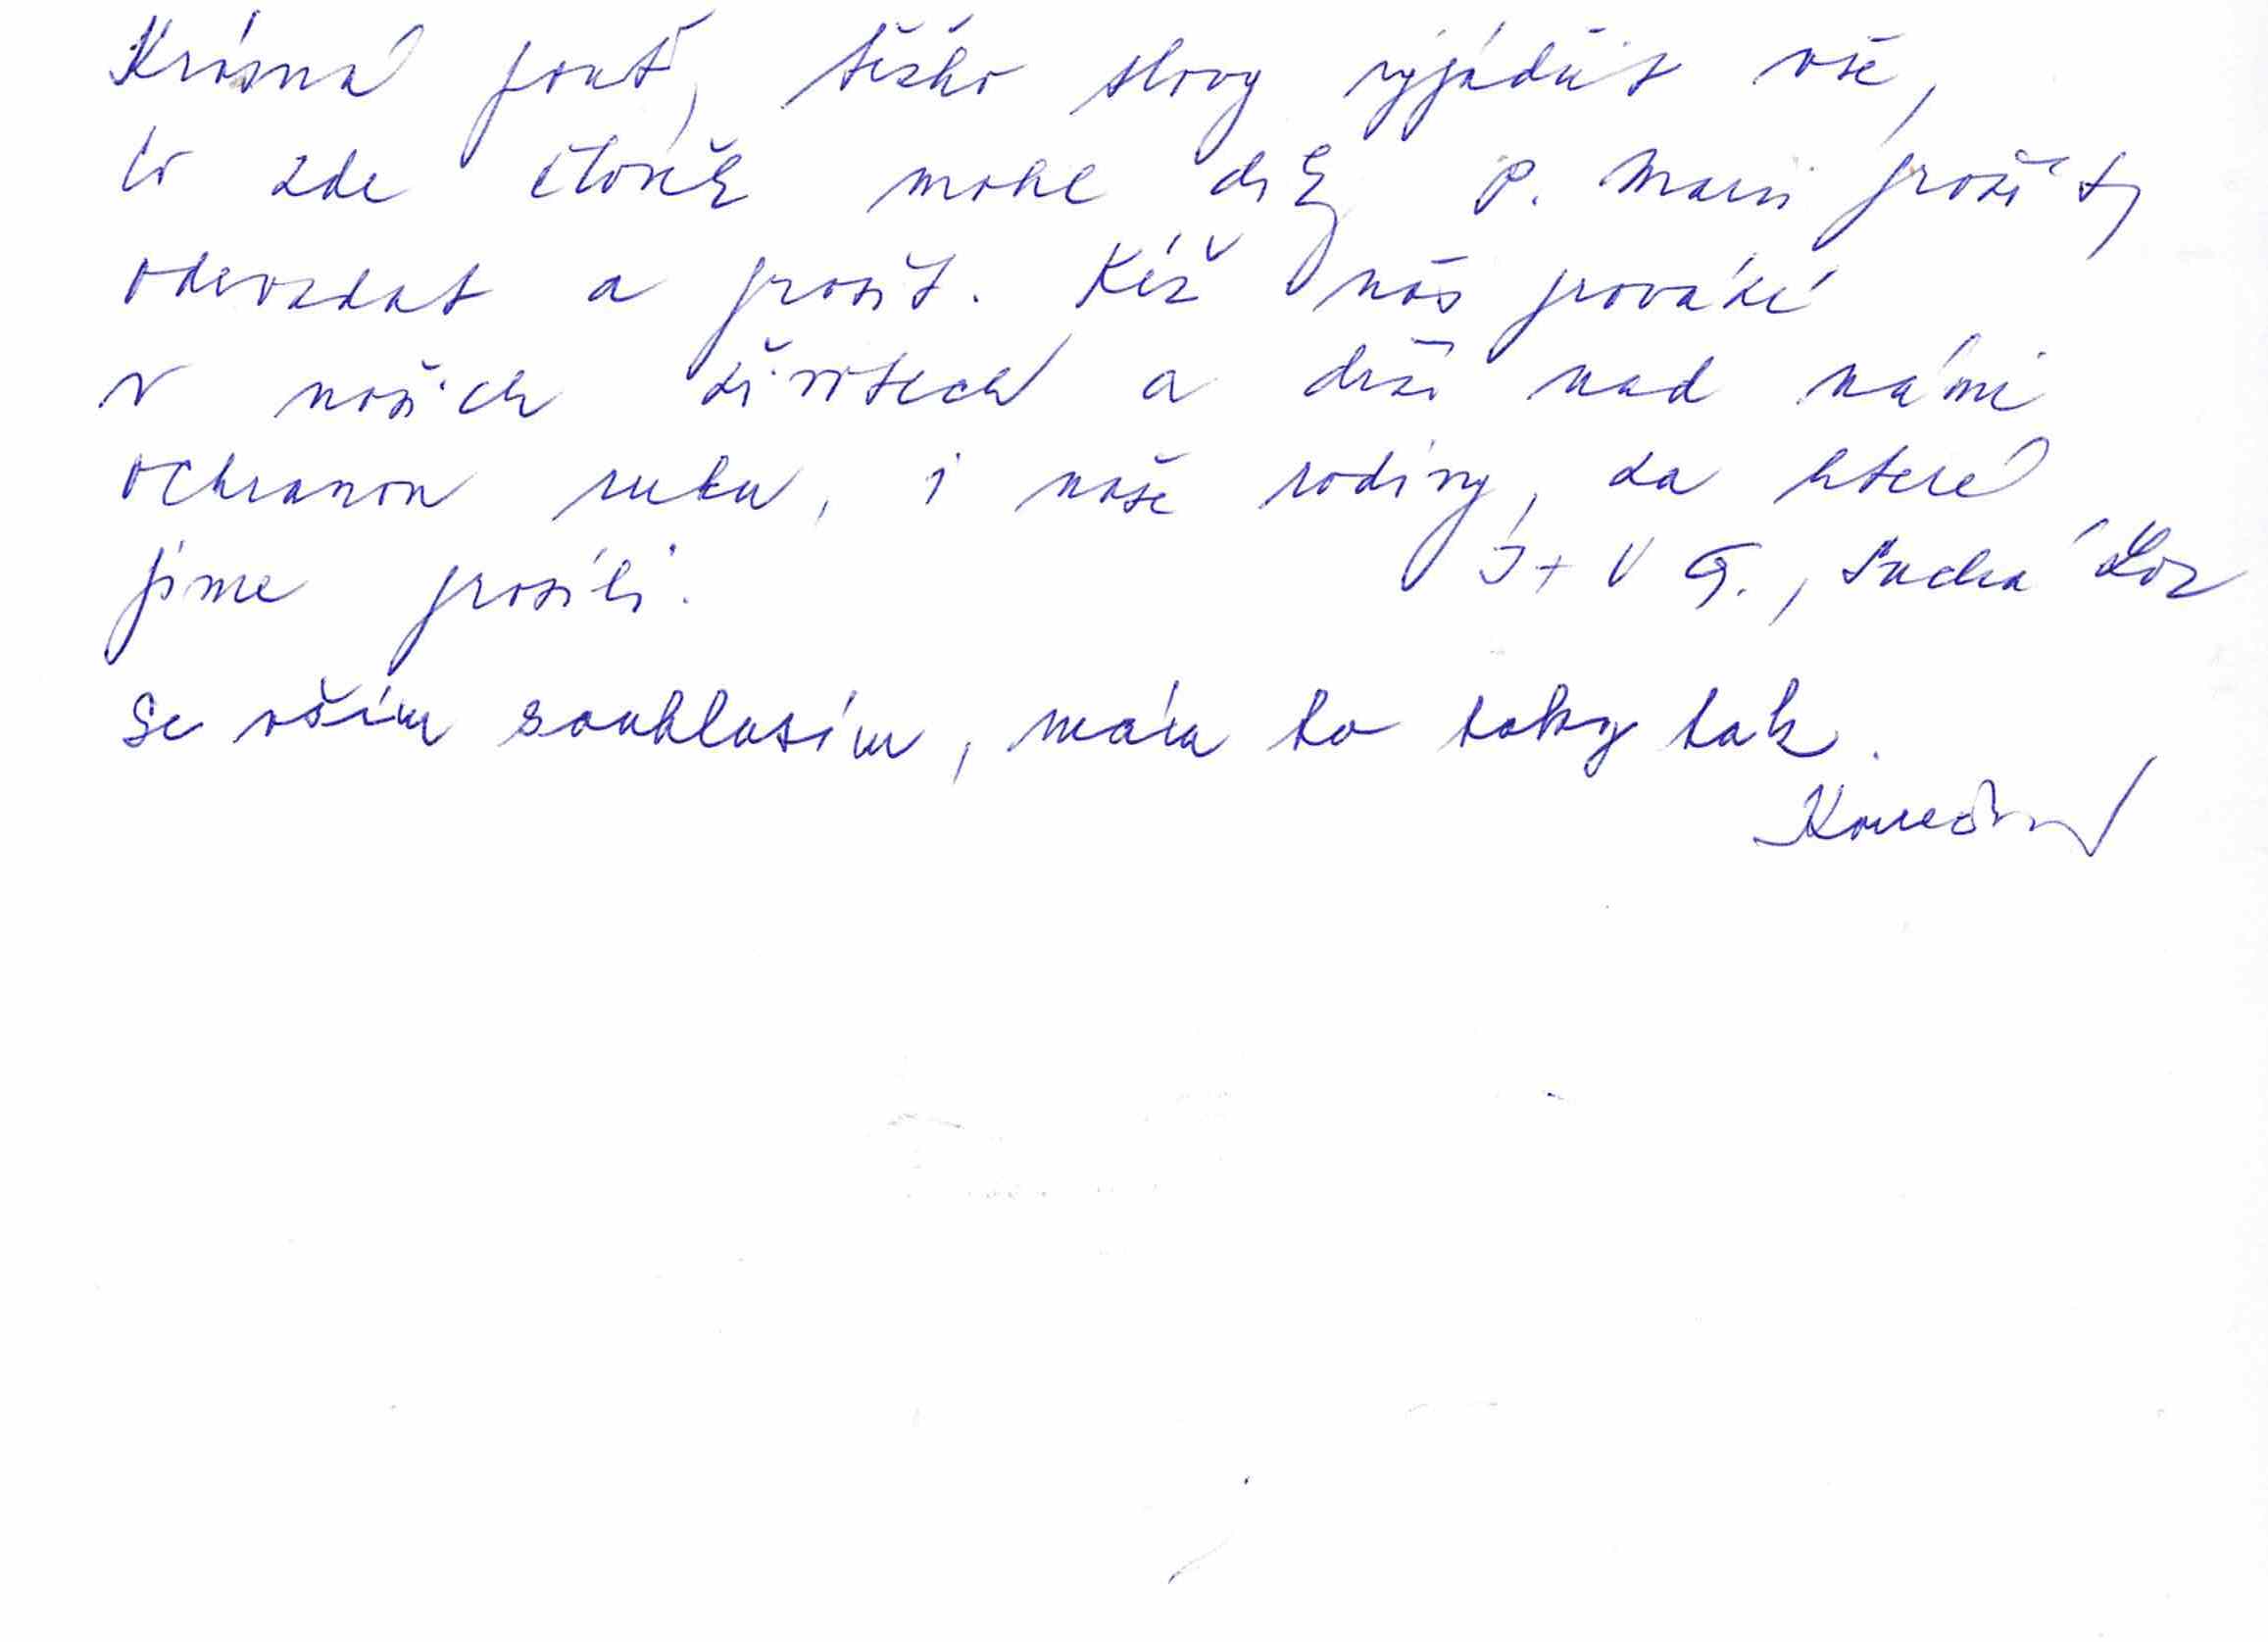 Krásná pouť, těžko slovy vyjádřit vše,
co zde člověk mohl díky P. Marii prožít,
odevzdat a prosit. Kéž nás provází
v našich životech a drží nad námi
ochranou ruku, i naše rodiny, za které
jsme prosili. J+V G., Suchá Loz
Se vším souhlasím, mám to taky tak.